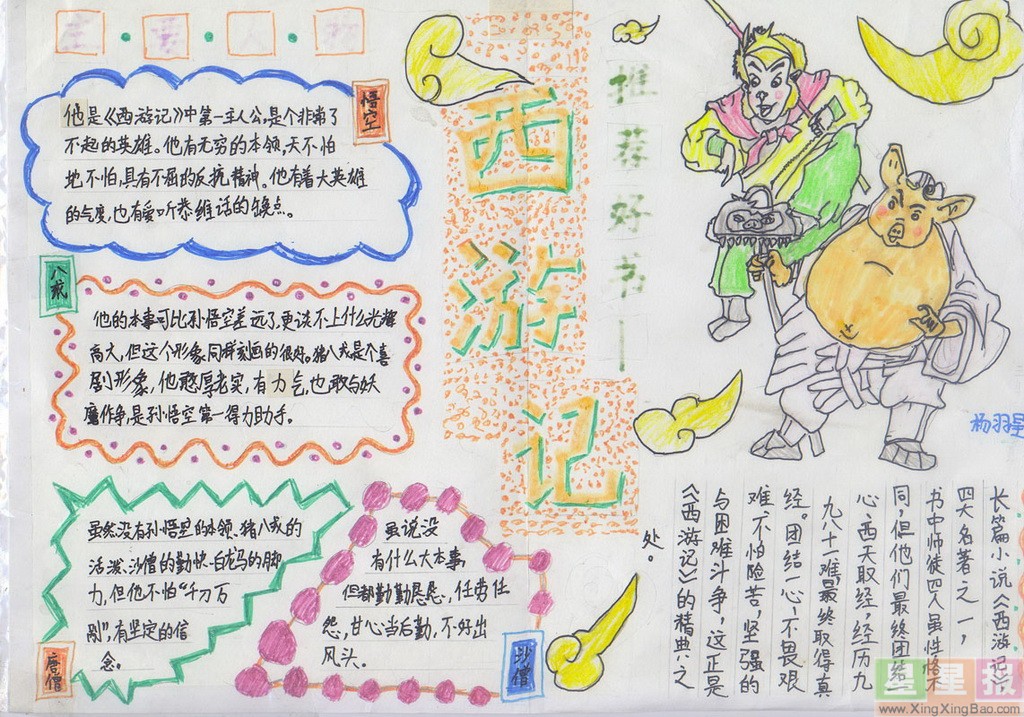 主要人物
悟空
他是《西游记》中第一主人公,是个非常了
不起的英雄。他有无穷的本领,天不怕
地不怕,具有不屈的反抗精神。他有着大英雄
的气度,也有爱听恭维话的缺点。
八戒
他的本事可比孙悟空差远了,更谈不上什么光辉
高大,但这个形象同样刻画的很好。猪八戒是个喜
剧形象,他憨厚老实,有力气,也敢与妖
魔作争,是孙悟空第一得力助手。
虽然没有孙悟空的本领、猪八戒的
活泼、沙僧的勤快、白龙马的脚
力,但他不怕“千刀万
剐”,有坚定的信
念。
唐僧
虽说没
有什么大本事,
但都勤勤恳恳,任劳任
怨,甘心当后勤,不好出
风头。
沙僧
西游记
推荐好书——
长篇小说《西游记》,
四大名著之一,
书中师徒四人虽性格不
同,但他们最终团结一
心,西天取经,经历九
九八十一难,最终取得真
经。团结一心,不畏艰
难,不怕险苦,坚强的
与困难斗争,这正是
《西游记》的精典之
处。
星星报
www.XingXingBao.com